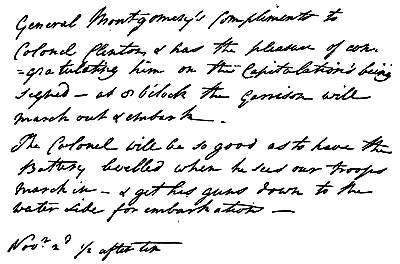 General Montgomery's Compliments to
Colonel Clinton, & has the pleasure of con-
=gratulating him on the Capitulation's being
signed – at 8 o'clock the Garrison will
march out & embark.
The Colonel will be so good as to have the
Battery levelled when he sees our troops
march in – & get his guns down to the
water side for embarkation –
Novr. 2d ½ after ten